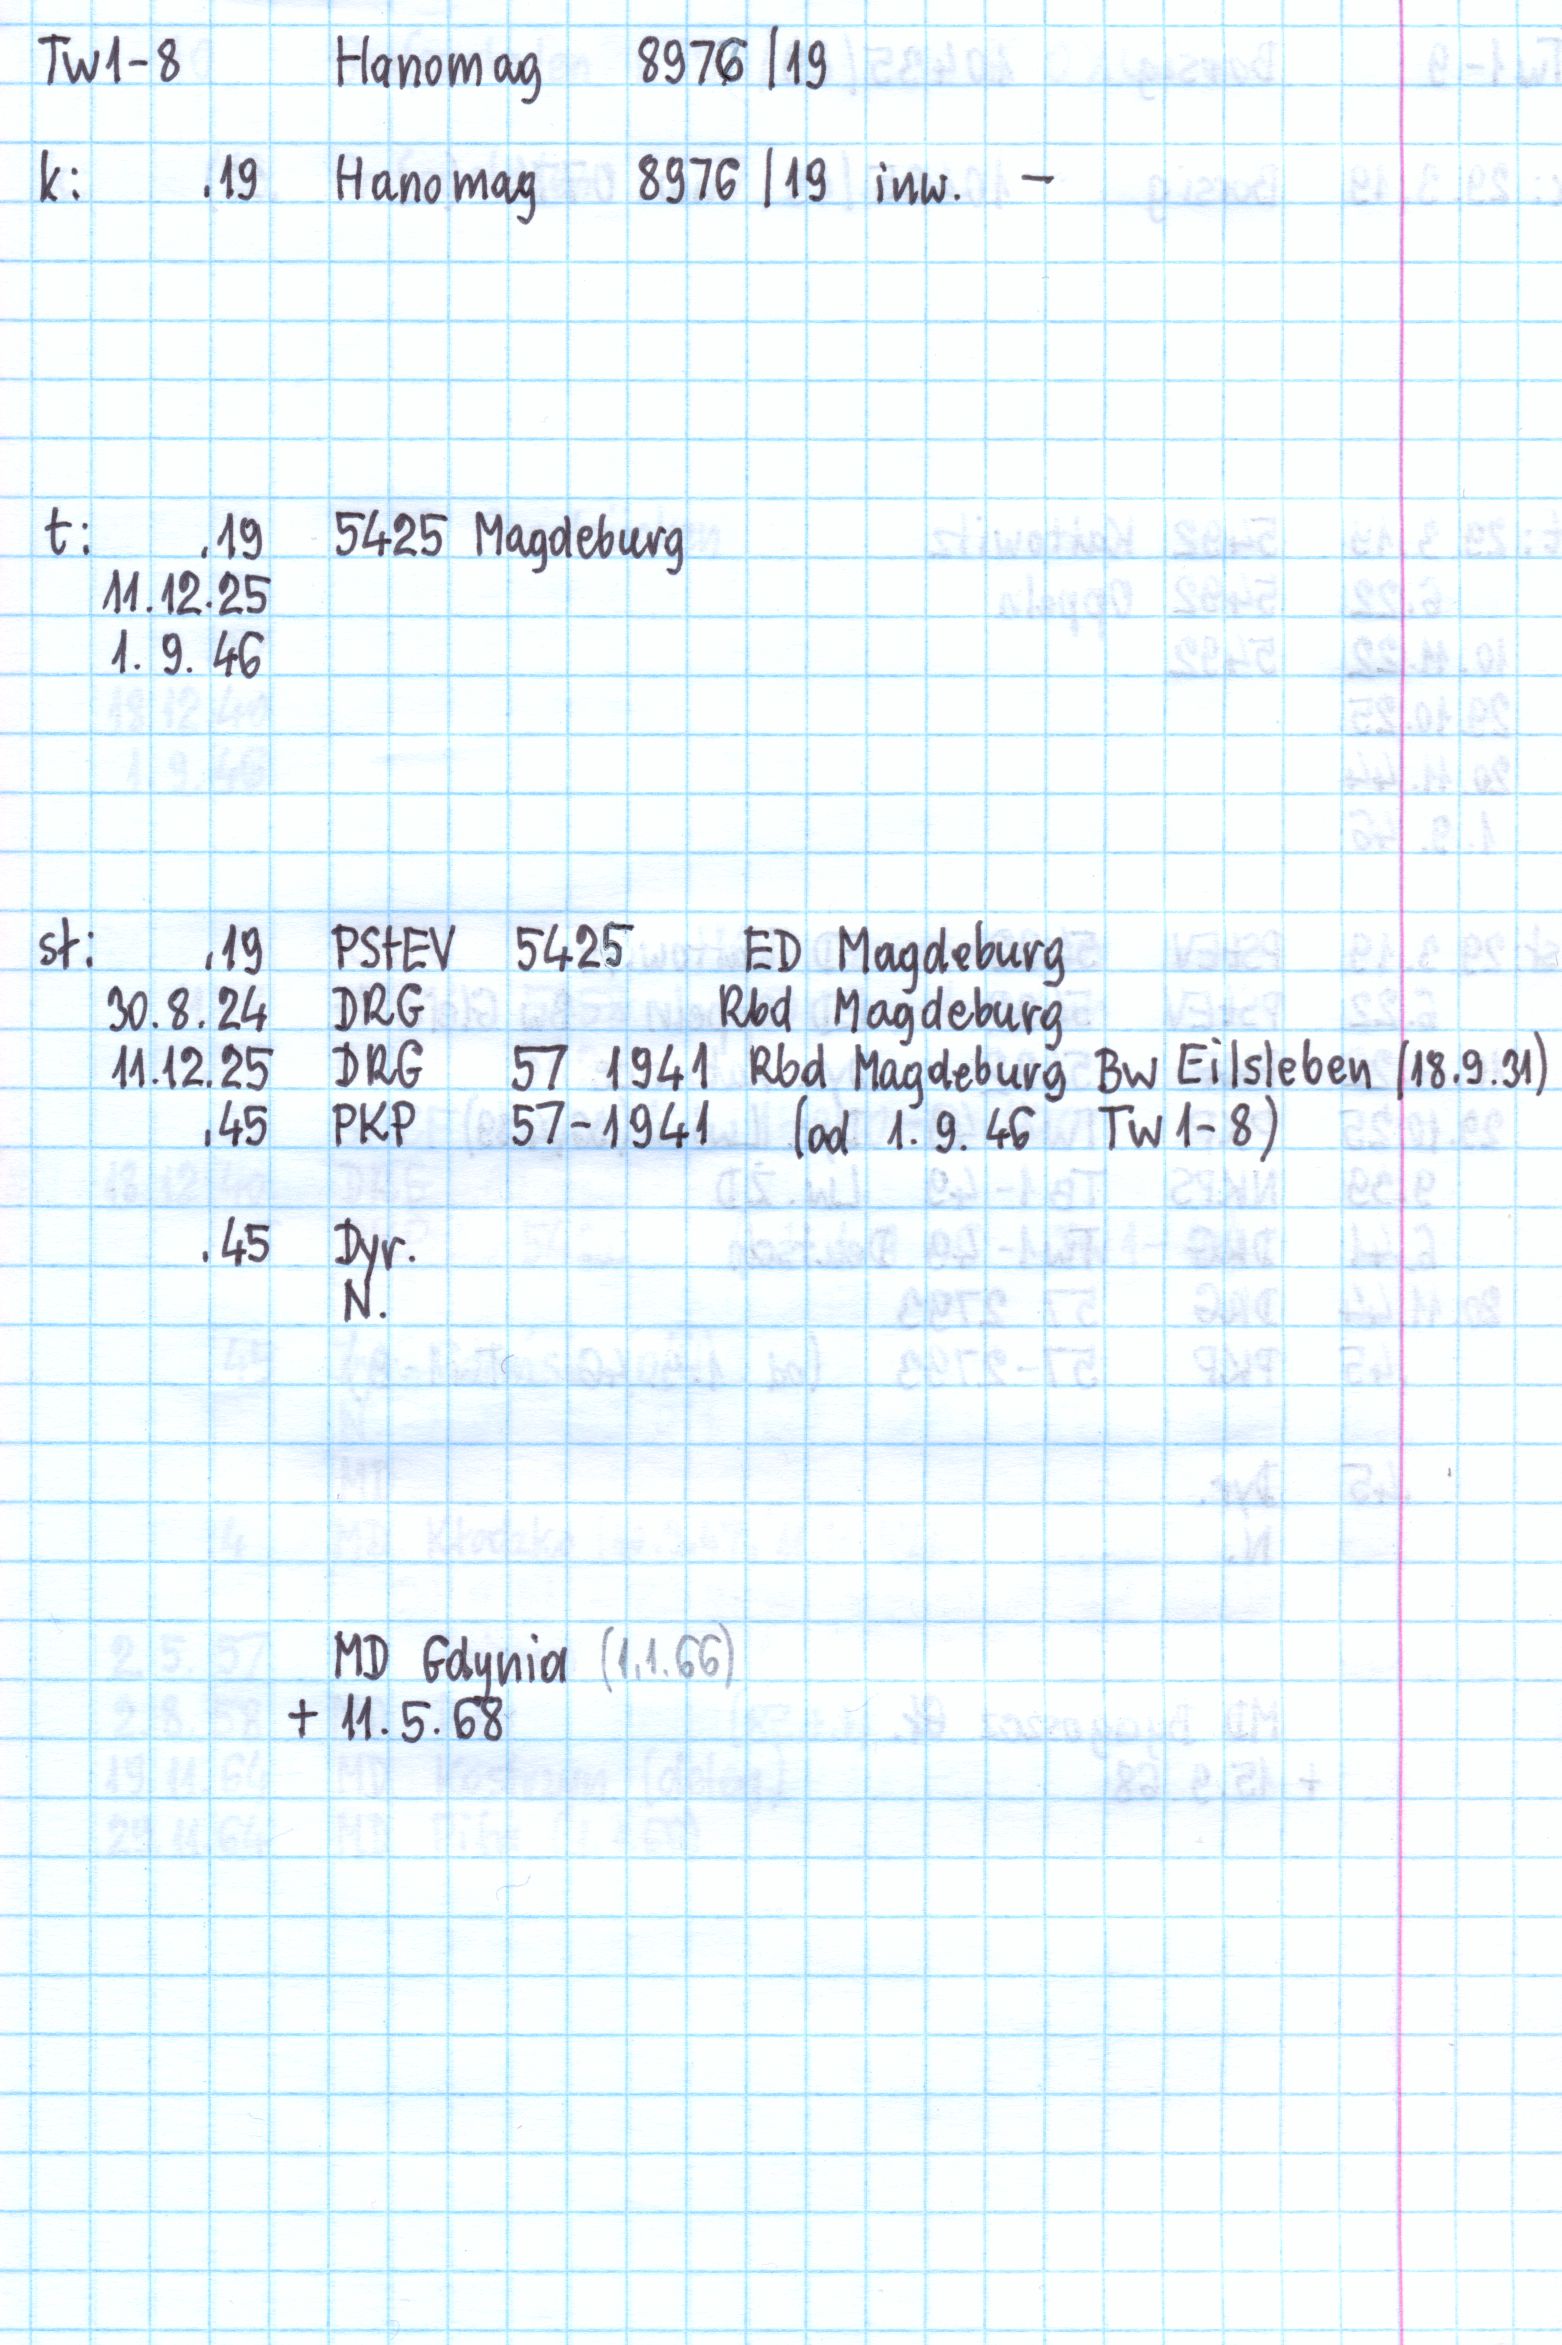 Tw1-8 Hanomag 8976/19
k: .19 Hanomag 8976/19 inw. -
t: .19 5425 Magdeburg
11.12.25
1.9.46
st: .19 PStEV 5425 ED Magdeburg
30.8.24 DRG Rbd Magdeburg
11.12.25 DRG 57 1941 Rbd Magdeburg Bw Eilsleben (18.9.31)
.45 PKP 57-1941 (od 1.9.46 Tw1-8)
.45 Dyr.
N.
MD Gdynia (1.1.66)
+ 11.5.68